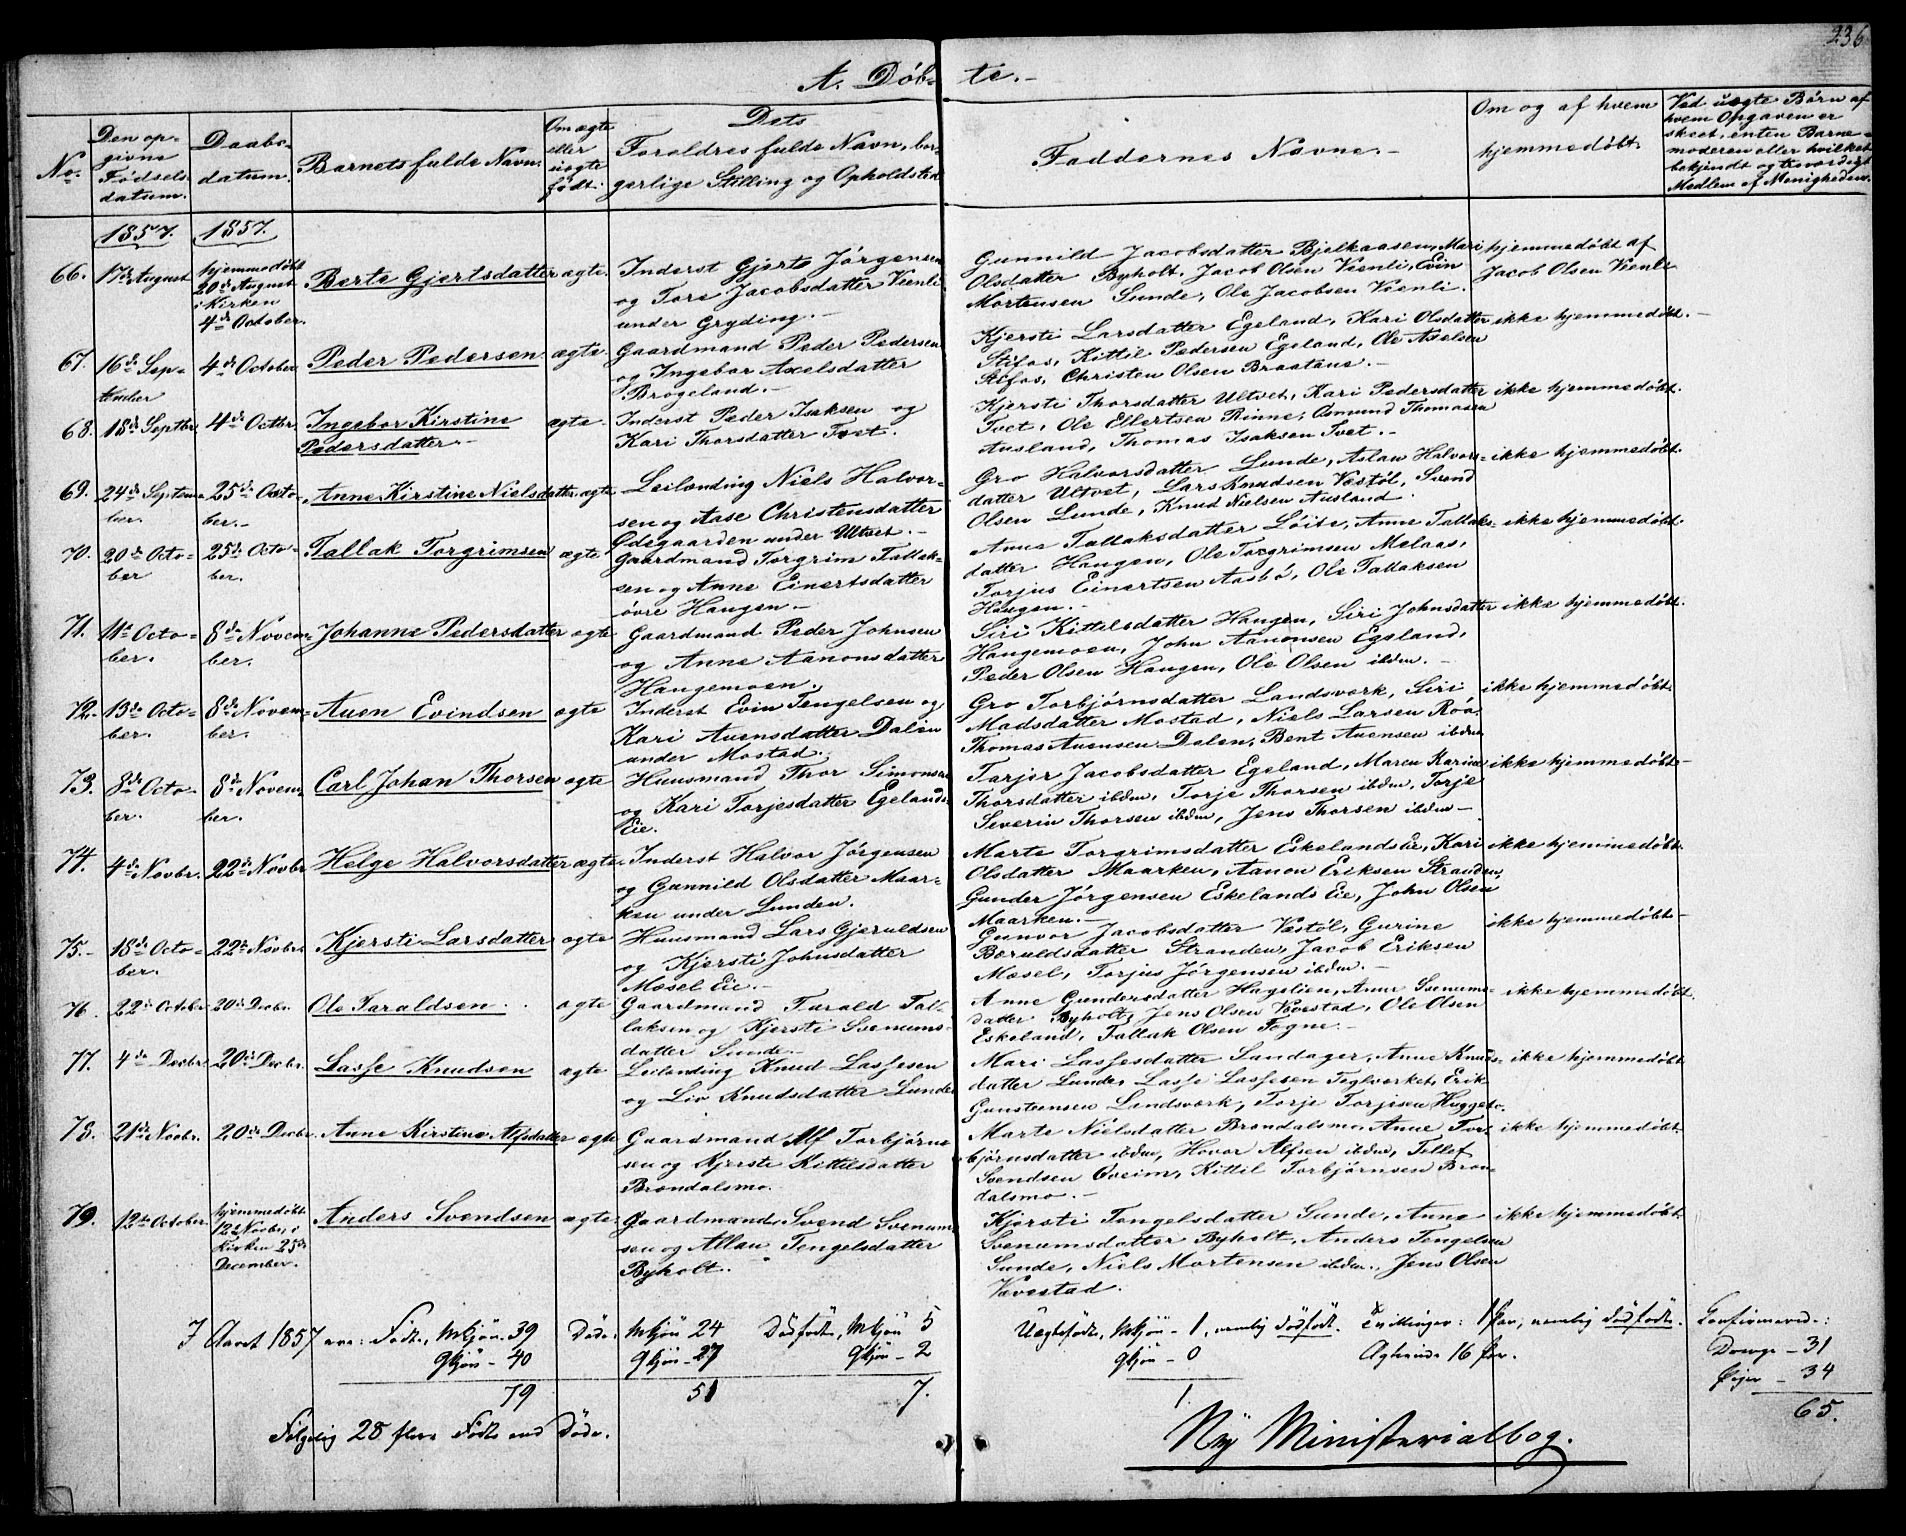 236
A. Døb- te.-
No.
Den op-
givne
Fødsels
datum.
Daabs-
datum.
Barnets fulde Navn.
Om ægte
eller
uægte
født.
Dets
Forældres fulde Navn, bor-
gerlige Stilling og Opholdsted
Faddernes Navne.-
Om og af hvem
hjemmedøbt.
Ved uægte Børn af
hvem Opgaven er
skeet, enten Barne-
moderen eller hvilket
bekjendt og troværdigt
Medlem af Menigheden.
1857. 1857.
66. 17de August
hjemmedøbt
20de August
i Kirken
4de October.
Berte Gjertsdatter ægte.
Inderst Gjert Jørgensen
og Tore Jacobsdatter Veenli
under Gryding.-
Gunnild Jacobsdatter Bjelkaasen, Mari
Olsdatter Byholt, Jacob Olsen Veenli, Evin
Mortensen Sunde, Ole Jacobsen Veenli.
hjemmedøbt af
Jacob Olsen Veenli
67. 16de Sep-
tember
4de October
Peder Pedersen ægte.
Gaardmand Peder Pedersen
og Ingebor Axelsdatter
Brogeland.-
Kjersti Larsdatter Egeland, Kari Olsdatter
Stifos, Kittil Pedersen Egeland, Ole Axelsen
Stifos, Christen Olsen Braatene.-
ikke hjemmedøbt.-
68. 18de Septbr. 4de Octbr.
Ingebor Kirstine
Pedersdatter.- ægte.
Inderst Peder Isaksen og
Kari Thorsdatter Tvet.
Kjersti Thorsdatter Ultvet, Kari Pedersdatter
Tvet, Ole Ellertsen Rinne, Osmund Thomasen
Ausland, Thomas Isaksen Tvet.-
ikke hjemmedøbt.
69. 24de Septem-
ber.
25de Octo-
ber.-
Anne Kirstine Nielsdatter. ægte
Leilænding Niels Halvor-
sen og Aase Christensdatter
Ødegaarden under Ultvet.-
Gro Halvorsdatter Lunde, Aslau Halvors-
datter Ultvet, Lars Knudsen Vestøl, Svend
Olsen Lunde, Knud Nielsen Ausland.
ikke hjemmedøbt.
70. 20de Octo-
ber
25de Octo-
ber.
Tallak Torgrimsen ægte
Gaardmand Torgrim Tallak-
sen og Anne Einertsdatter
øvre Haugen.-
Anne Tallaksdatter Løite, Anne Tallaks-
datter Haugen, Ole Torgrimsen Melaas,
Torjus Einertsen Aasbø, Ole Tallaksen
Haugen.-
ikke hjemmedøbt.
71. 11te Octo-
ber.
8de Novem-
ber.
Johanne Pedersdatter ægte
Gaardmand Peder Johnsen
og Anne Aanonsdatter
Haugemoen.
Siri Kittilsdatter Haugen, Siri Johnsdatter
Haugemoen, John Aanonsen Egeland,
Peder Olsen Haugen, Ole Olsen ibdm.-
ikke hjemmedøbt.
72.- 13de Octo-
ber.
8de Novem-
ber.
Auen Evindsen ægte
Inderst Evin Tengelsen og
Kari Auensdatter Dalen
under Mostad.
Gro Torbjørnsdatter Landsverk, Siri
Madsdatter Mostad, Niels Larsen Roa,
Thomas Auensen Dalen, Bent Auensen ibdm
ikke hjemmedøbt
73. 8de Octo-
ber.
8de Novem-
ber.
Carl Johan Thorsen ægte
Huusmand Thor Simonsen
og Kari Torjesdatter Egelands
Eie.
Tarjer Jacobsdatter Egeland, Maren Karine
Thorsdatter ibdm, Torje Thorsen ibdm, Torje
Severin Thorsen ibdm, Jens Thorsen ibdm-
ikke hjemmedøbt-
74. 4de Novbr. 22de Novbr
Helge Halvorsdatter ægte.
Inderst Halvor Jørgensen
og Gunnild Olsdatter Maar-
ken under Lunden.
Marte Torgrimsdatter Eskelands Eie, Kari
Olsdatter Maarken, Aanon Eriksen Stranden,
Gunder Jørgensen Eskelands Eie, John Olsen
Maarken.-
ikke hjemmedøbt.
75.- 18de Octo-
ber.
22de Novbr.
Kjersti Larsdatter ægte
Huusmand Lars Gjeruldsen
og Kjersti Johnsdatter
Mæsel Eie.-
Gunvor Jacobsdatter Vestøl, Gurine
Beruldsdatter Stranden, Jacob Eriksen
Mæsel, Torjus Jørgensen ibdm.-
ikke hjemmedøbt-
76. 22de October 20de Decbr.
Ole Taraldsen. ægte
Gaardmand Tarald Tal-
laksen og Kjersti Svenums-
datter Sunde.-
Anne Gundersdatter Hagelien, Anne Svenums-
datter Byholt, Jens Olsen Vævestad, Ole Olsen
Eskeland, Tallak Olsen Fogne.-
ikke hjemmedøbt.
77. 4de Decbr. 20de Decbr.
Lasse Knudsen ægte
Leilending Knud Lassesen
og Liv Knudsdatter Lunde
Mari Lassesdatter Landager, Anne Knuds-
datter Lunde, Lasse Lassesen Teglverket, Erik
Gunstensen Landsverk, Torje Torjesen Huggeto.
ikke hjemmedøbt
78. 21de Novbr. 20de Decbr.
Anne Kirstine Alfsdatter ægte
Gaardmand Alf Torbjørn-
sen og Kjersti Kittilsdatter
Brøndalsmo.
Marte Nielsdatter Brøndalsmo, Anne Tor-
bjørnsdatter ibdm, Hovor Alfsen ibdm, Tellef
Svendsen Oveim, Kittil Torbjørnsen Brøn-
dalsmo.-
ikke hjemmedøbt
79. 12te October
hjemmedøbt
12te Novbr., i
Kirken 25de
December.
Anders Svendsen ægte.
Gaardmand Svend Svenum-
sen og Allau Tengelsdatter
Byholt.
Kjersti Tengelsdatter Sunde, Anne
Svenumsdatter Byholt, Anders Tengelsen
Sunde, Niels Mortensen ibdm., Jens Olsen
Vævestad.
ikke hjemmedøbt.
I Aaret 1857 ere: Fødte, Mkjøn 39 Døde Mkjøn 24 Dødfødte, Mkjøn 5
Qkjøn - 40 Qkjøn - 27 Qkjøn - 2
79 51 7.
Følgelig 28 flere Fødte end Døde.
Uægtefødte, Mkjøn - 1, nemlig dødfødt. Tvillinger: 1 Par, nemlig dødfødte.
Qkjøn - 0 Ægteviede 16 Par.
1.
Confirmerede:
Drenge - 31
Piger - 34
65.
Ny Ministerialbog.